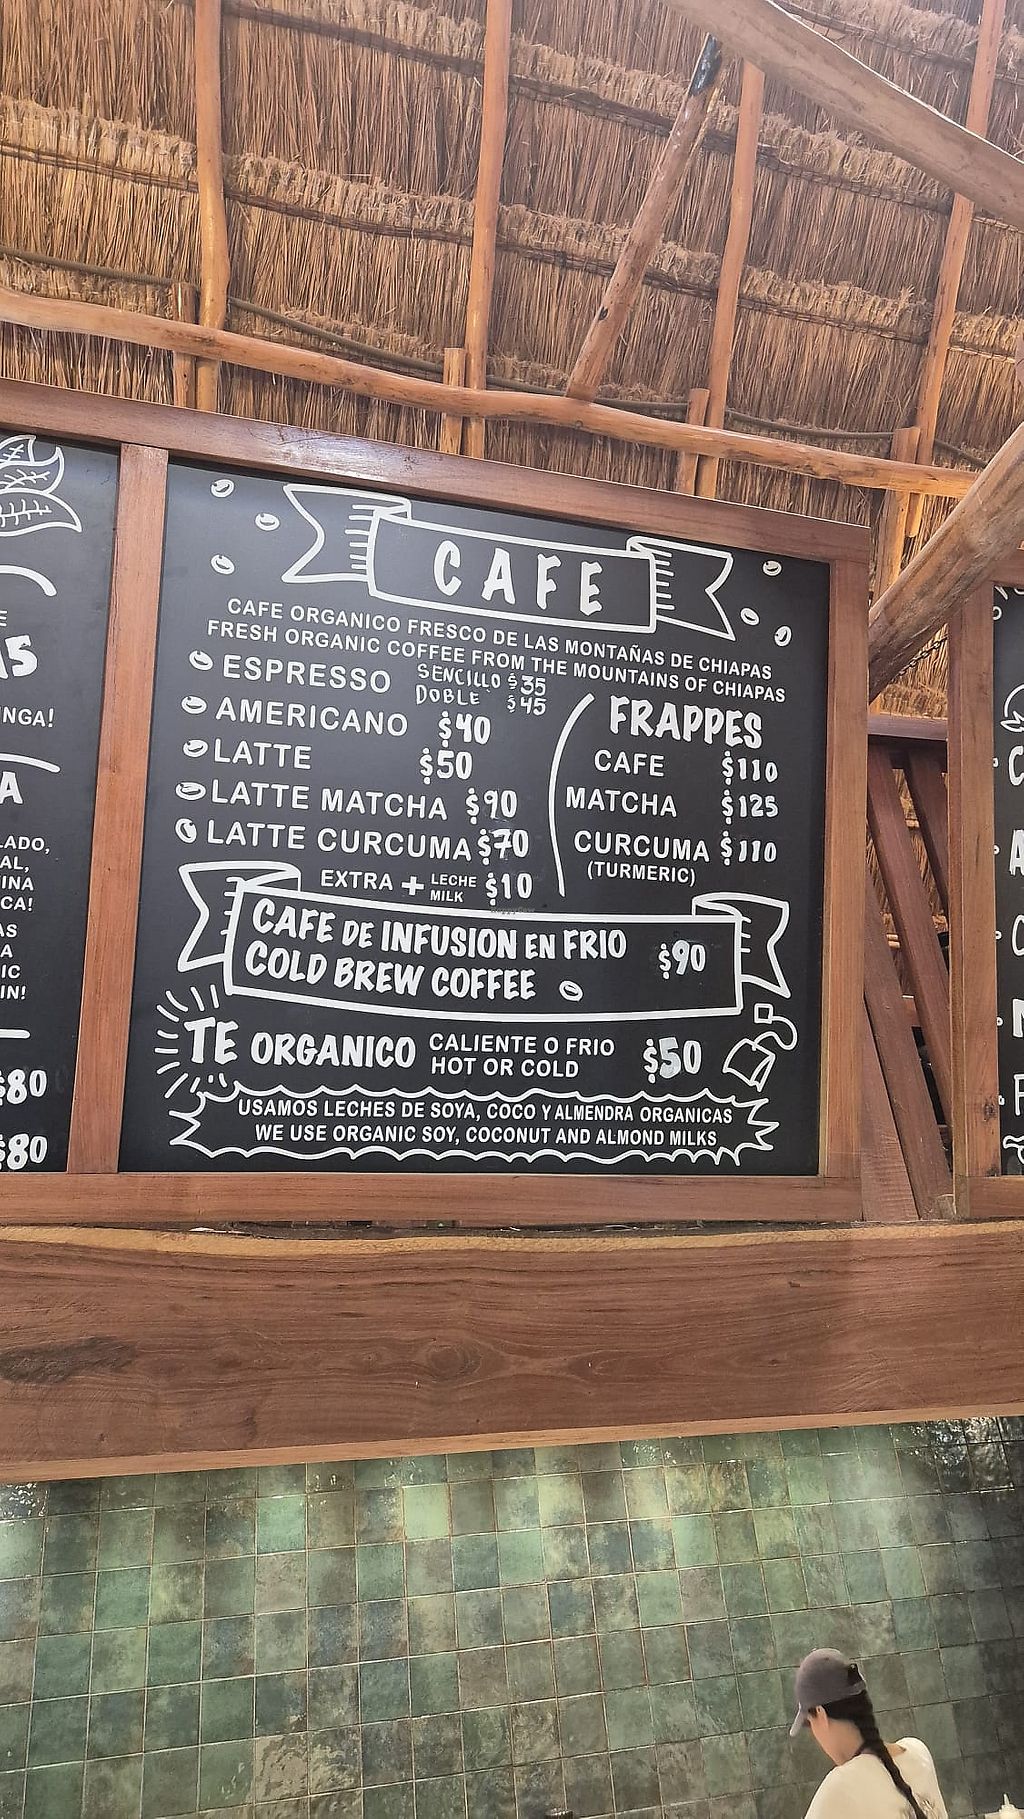 E
S
INGA!
A
LADO,
AL,
INA
CA!
AS
A
IC
IN!
$80
$80
CAFE
CAFE ORGANICO FRESCO DE LAS MONTAÑAS DE CHIAPAS
FRESH ORGANIC COFFEE FROM THE MOUNTAINS OF CHIAPAS
ESPRESSO SENCILLO $35
DOBLE $45
AMERICANO $40
LATTE $50
LATTE MATCHA $90
LATTE CURCUMA $70
EXTRA + LECHE MILK $10
FRAPPES
CAFE $110
MATCHA $125
CURCUMA $110
(TURMERIC)
CAFE DE INFUSION EN FRIO
COLD BREW COFFEE $90
TE ORGANICO CALIENTE O FRIO
HOT OR COLD $50
USAMOS LECHES DE SOYA, COCO Y ALMENDRA ORGANICAS
WE USE ORGANIC SOY, COCONUT AND ALMOND MILKS